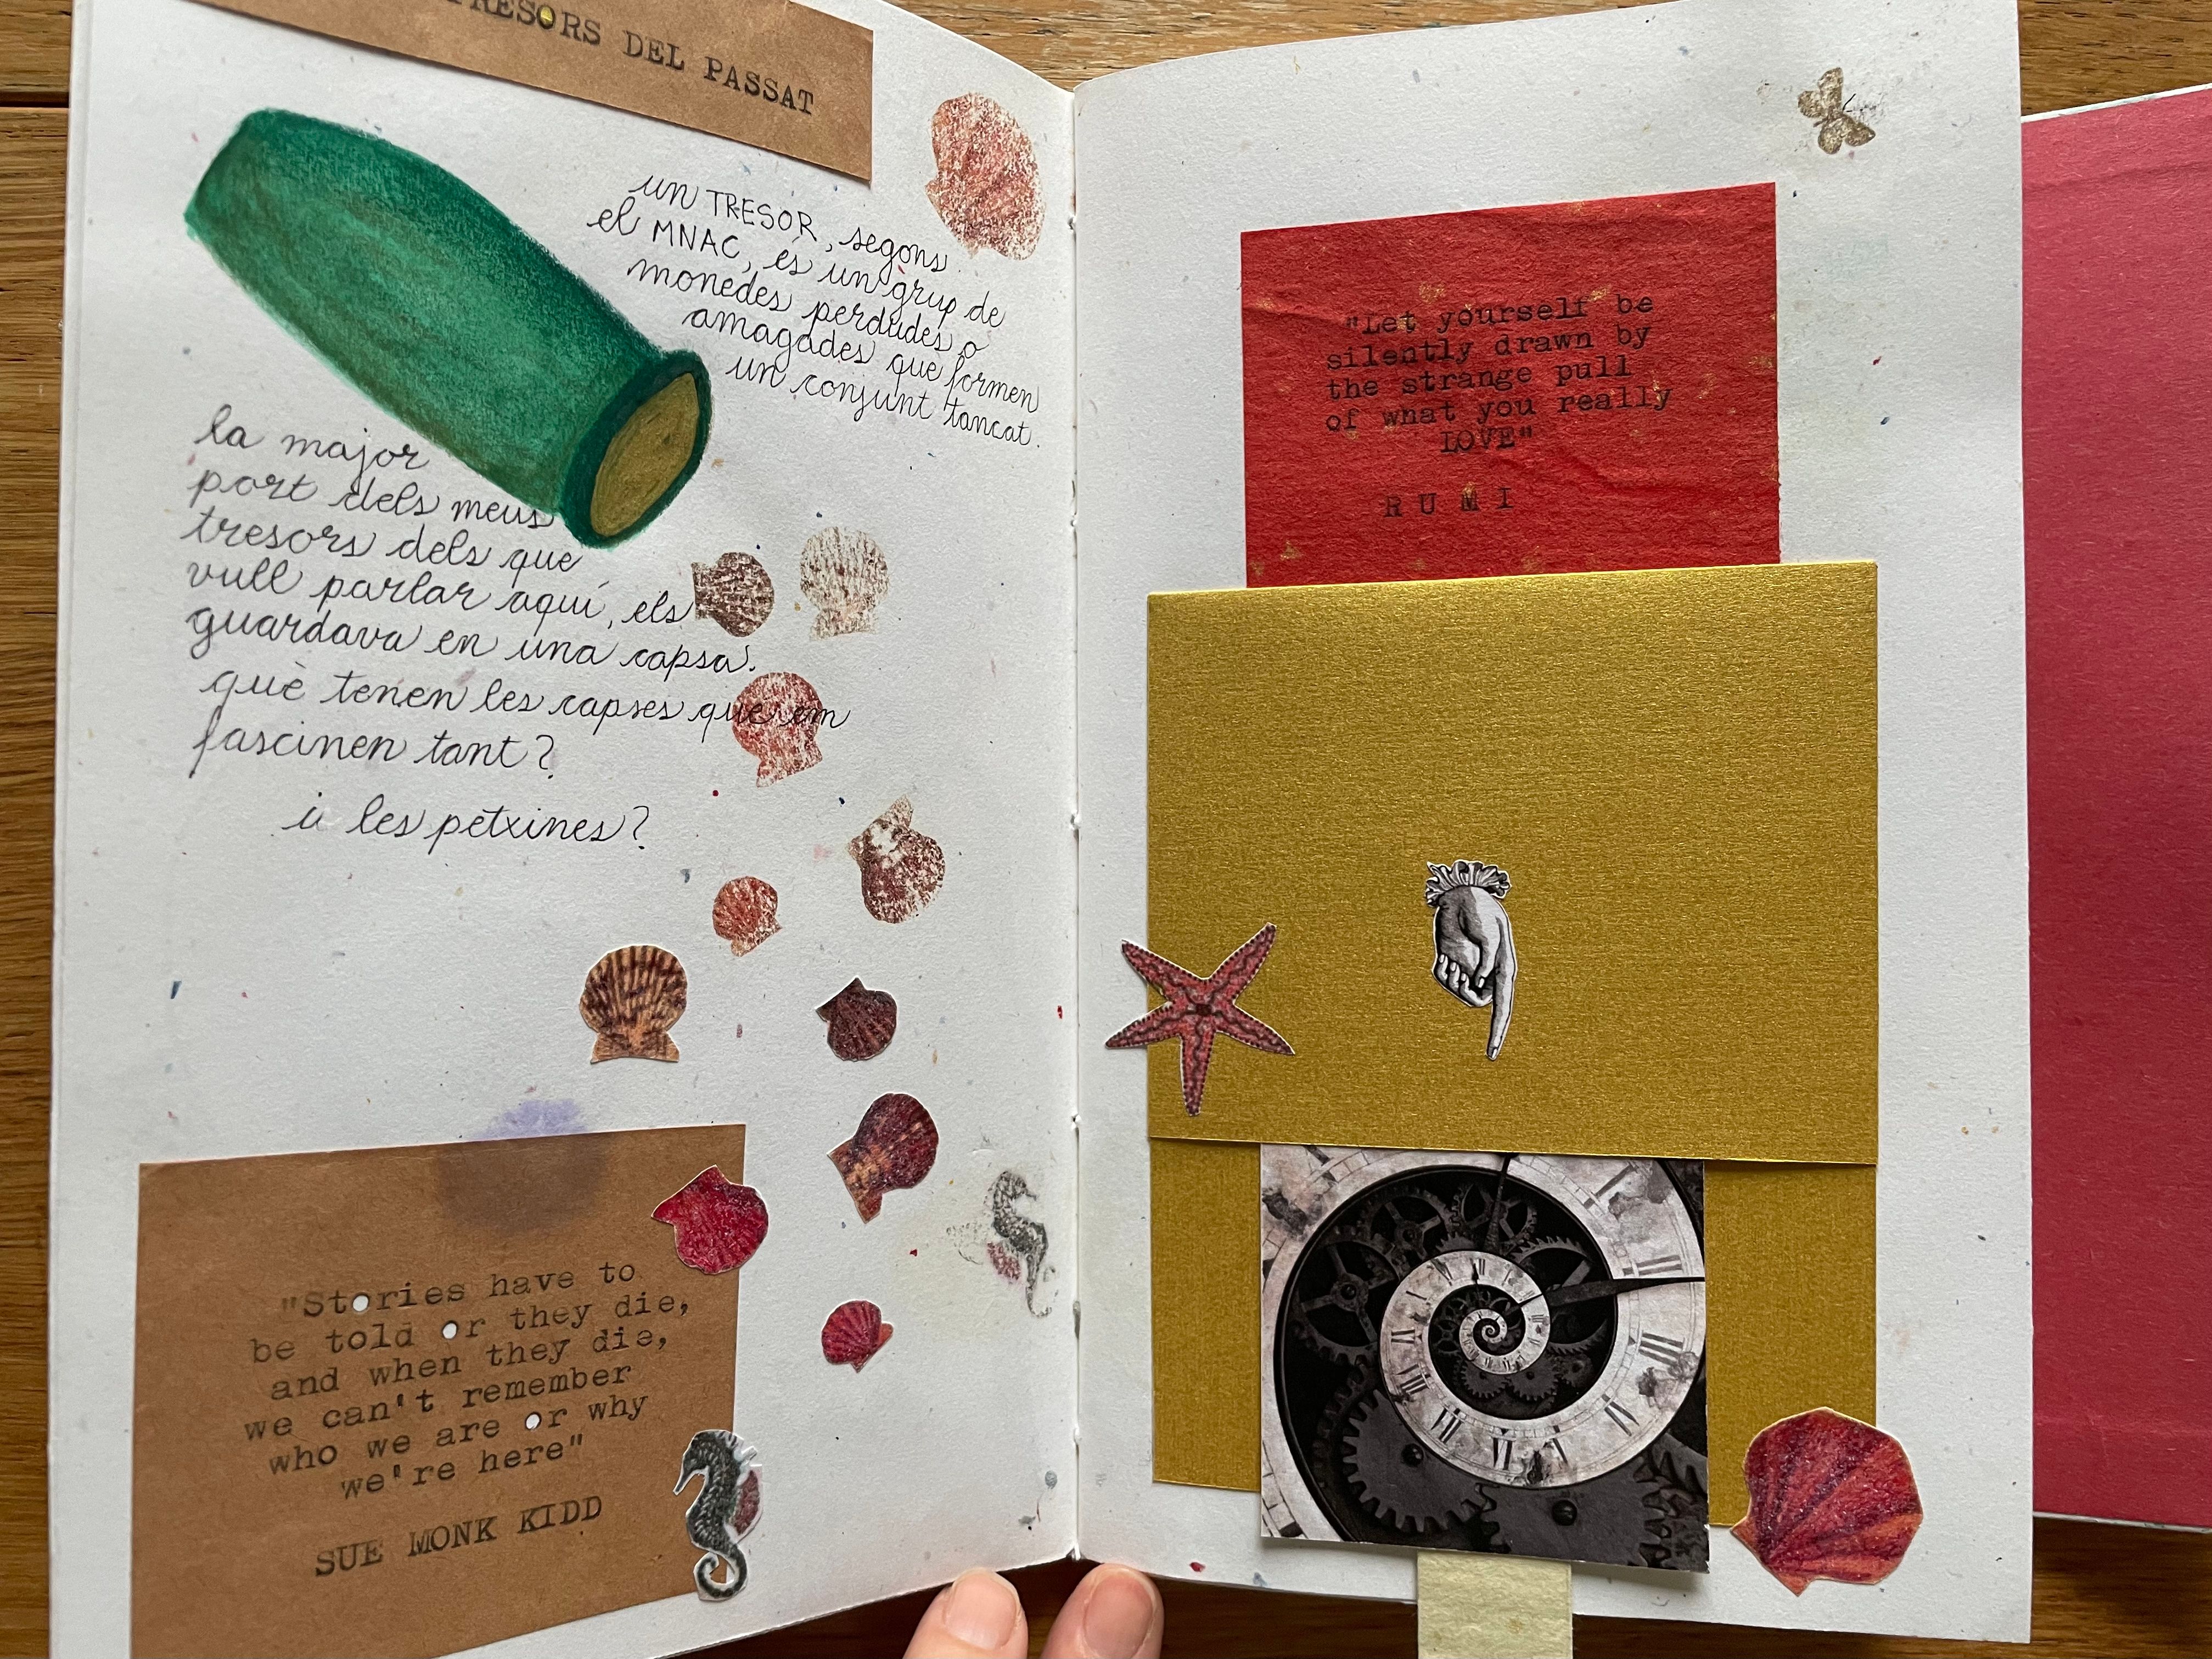 TRESORS DEL PASSAT
un TRESOR, segons
el MNAC, és un grup de
monedes perdudes o
amagades que formen
un conjunt tancat.
la major
port dels meus
tresors dels que
vull parlar aquí, els
guardava en una capsa.
què tenen les capses que em
fascinen tant?
i les petxines?
"Stories have to
be told or they die,
and when they die,
we can't remember
who we are or why
we're here"
SUE MONK KIDD
"Let yourself be
silently drawn by
the strange pull
of what you really
LOVE"
RUMI